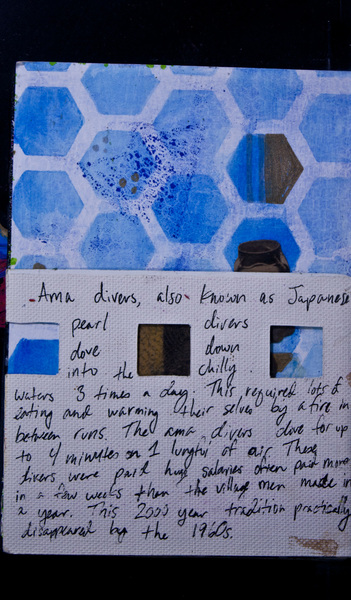 Ama divers, also known as Japanese
pearl divers
dove down
into the chilly
waters 3 times a day. This required lots of
eating and warming their selves by a fire in
between runs. The ama divers dove for up
to 4 minutes on 1 lungful of air. These
divers were paid huge salaries often paid more
in a few weeks than the village men made in
a year. This 2000 year tradition practically
disappeared by the 1960s.